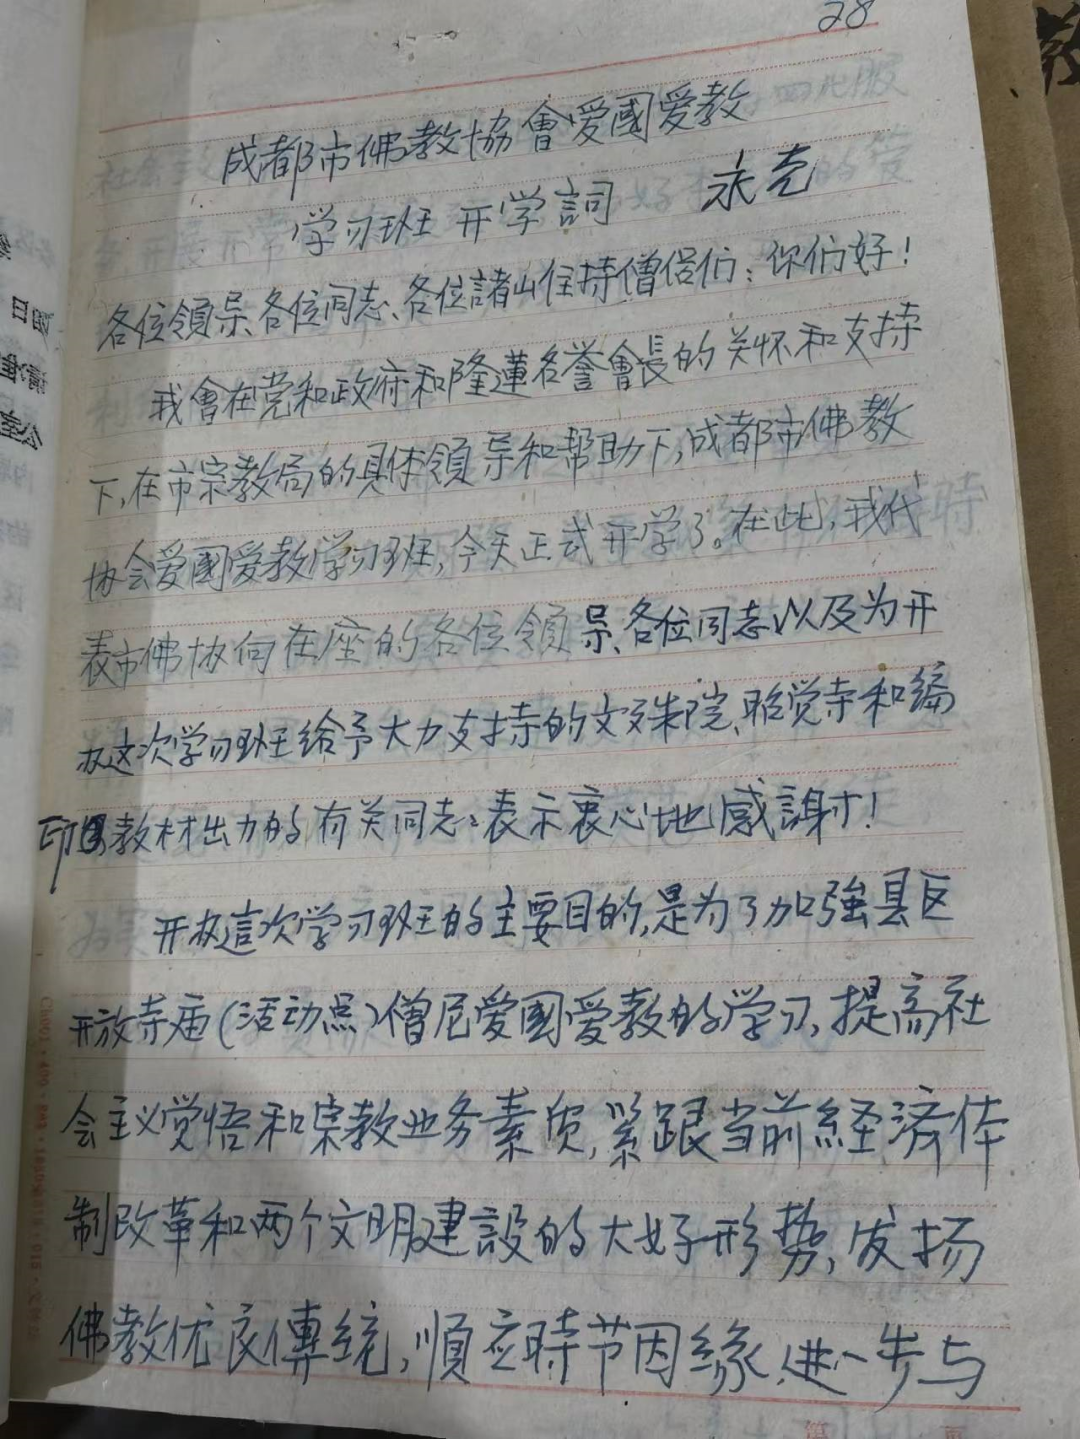 28
成都市佛教協會愛國愛教
学习班开学詞 永壳
各位領导、各位同志、各位諸山住持僧侣们：你们好！
我會在党和政府和隆蓮名誉會長的关怀和支持
下，在市宗教局的具体領导和帮助下，成都市佛教
协会爱國爱教学习班，今天正式开学了。在此，我代
表市佛协向在座的各位領导、各位同志以及为开
办这次学习班给予大力支持的文殊院、昭觉寺和编
印教材出力的有关同志：表示衷心地感謝！
开办這次学习班的主要目的，是为了加強县区
开放寺庙（活动点）僧尼爱國爱教的学习，提高社
会主义觉悟和宗教业务素质，紧跟当前経済体
制改革和两个文明建設的大好形势，发扬
佛教优良傳統，順应時节因緣，进一步与